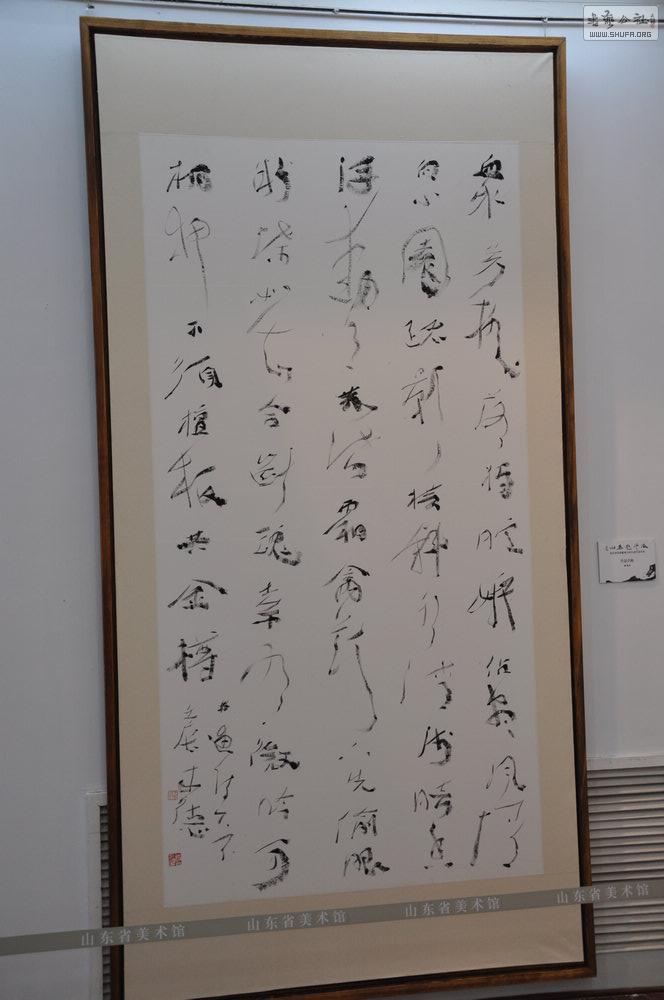 眾芳搖落獨暄妍佔盡風情
向小園疏影橫斜水清淺暗香
浮動月黃昏霜禽欲下先偷眼
粉蝶如知合斷魂幸有微吟可
相狎不須檀板共金樽
WWW.SHUFA.ORG
山东省美术馆
山东省美术馆
山东省美术馆
山东省美术馆